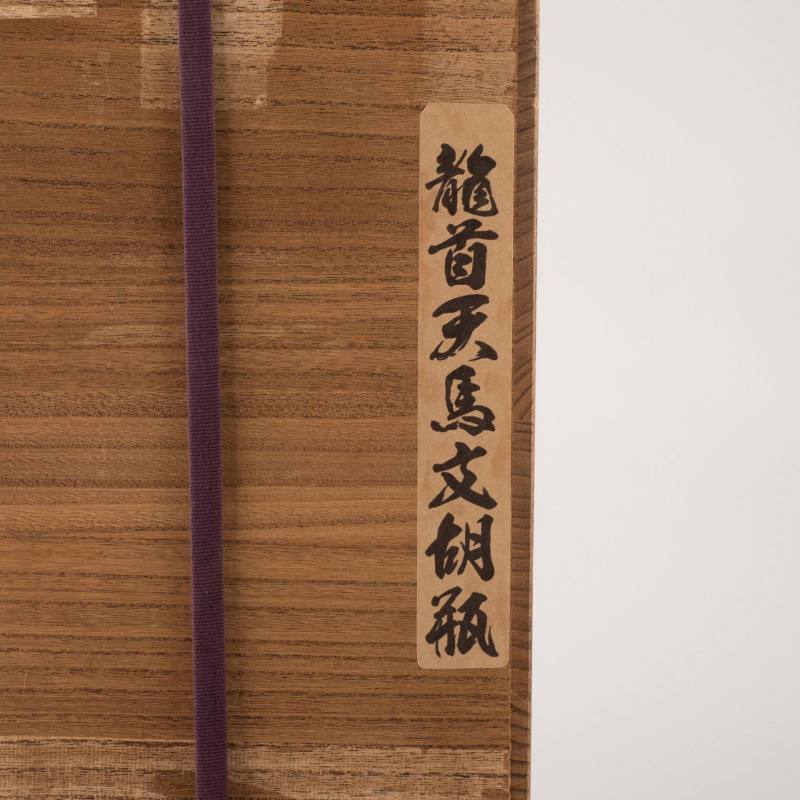 龍首天馬文胡瓶